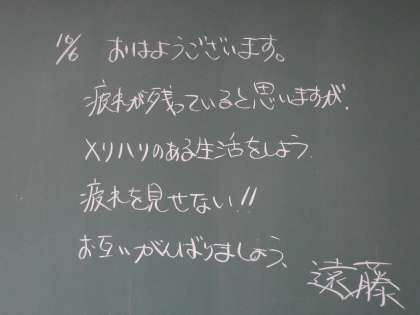 10/6 おはようございます。
疲れが残っていると思いますが、
メリハリのある生活をしよう.
疲れを見せない!!
お互いがんばりましょう、
遠藤